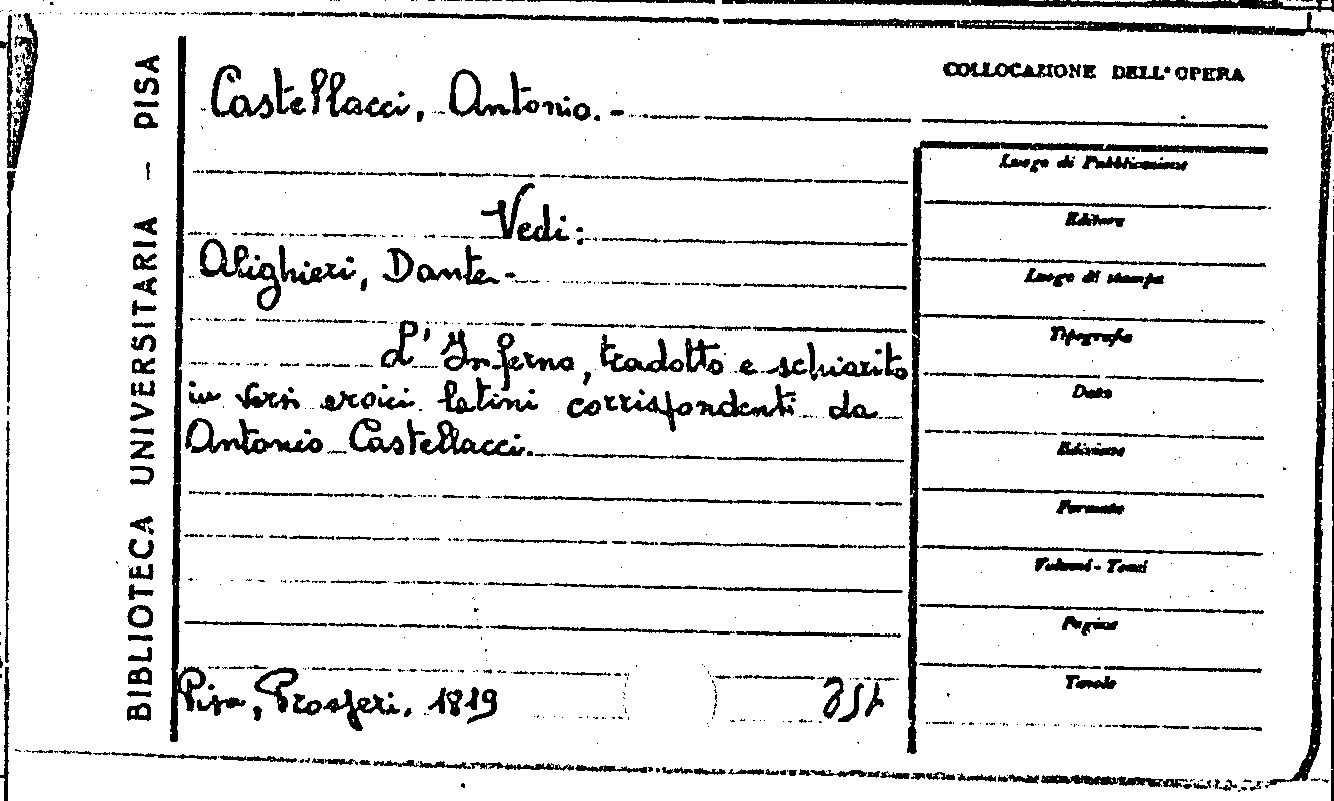 BIBLIOTECA UNIVERSITARIA — PISA
Castellacci, Antonio. -
Vedi:
Alighieri, Dante -
L' Inferno, tradotto e schiarito
in versi eroici latini corrispondenti da
Antonio Castellacci.
Pisa, Prosperi, 1819
COLLOCAZIONE DELL'OPERA
Luogo di Pubblicazione
Editore
Luogo di stampa
Tipografia
Data
Edizione
Formato
Volumi - Tomi
Pagine
Tavole